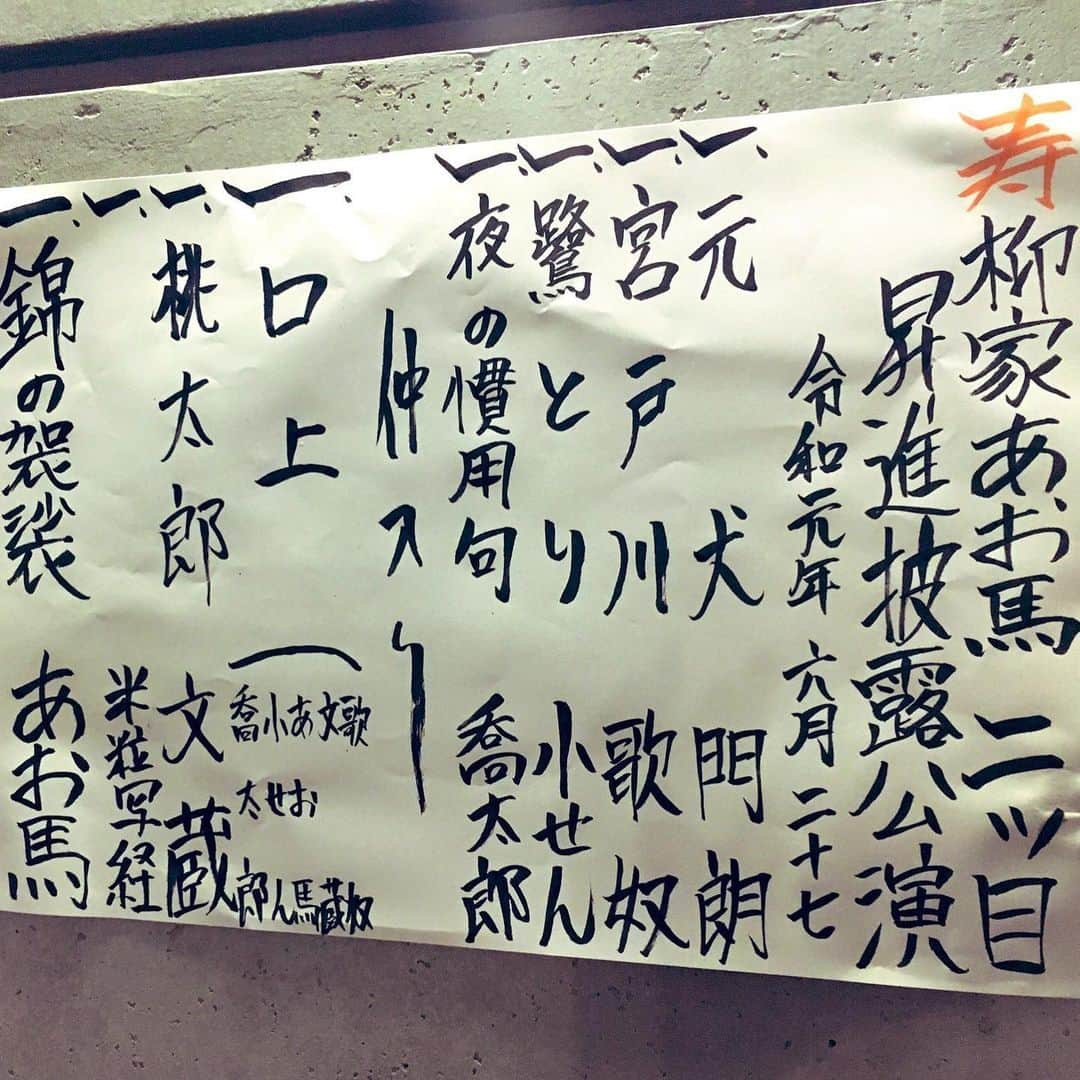 寿 柳家あお馬 二ッ目
昇進披露公演
令和元年 六月 二十七
一、元犬 門朗
一、宮戸川 歌奴
一、鷺とり 小せん
一、夜の慣用句 喬太郎
仲入り
一 口上 歌奴 文蔵 あお馬 小せん 喬太郎
一、桃太郎 文蔵
一、米粒写経
一、錦の袈裟 あお馬